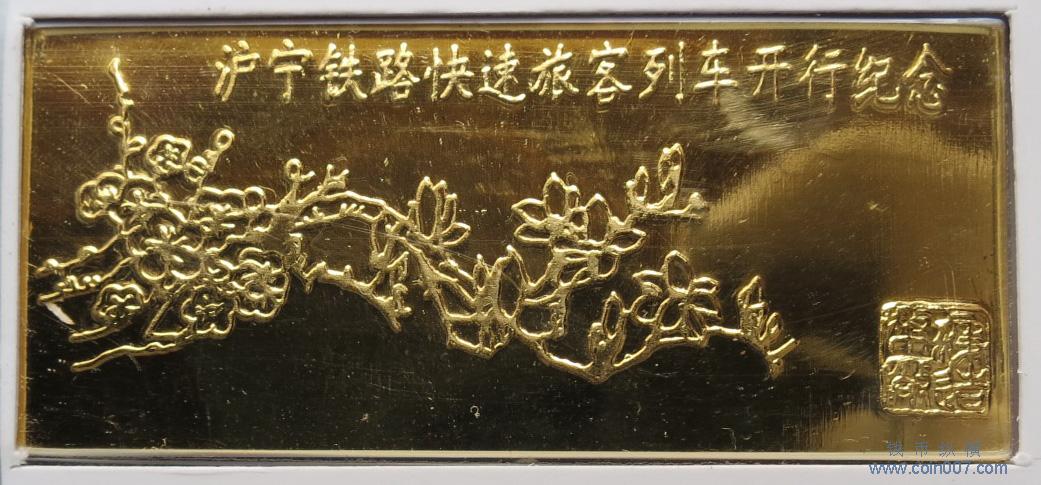 沪宁铁路快速旅客列车开行纪念
钱币纵横
www.coin007.com